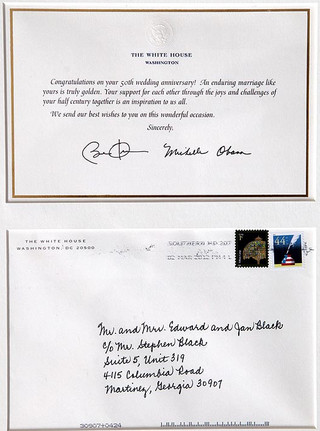 THE WHITE HOUSE
WASHINGTON
Congratulations on your 50th wedding anniversary! An enduring marriage like
yours is truly golden. Your support for each other through the joys and challenges of
your half century together is an inspiration to us all.
We send our best wishes to you on this wonderful occasion.
Sincerely,
Michelle Obama
THE WHITE HOUSE
WASHINGTON, DC 20500
SOUTHERN MD 207
44
Mr. and Mrs. Edward and Jan Black
c/o Mr. Stephen Black
Suite 5, Unit 319
4115 Columbia Road
Martinez, Georgia 30907
30907+0424